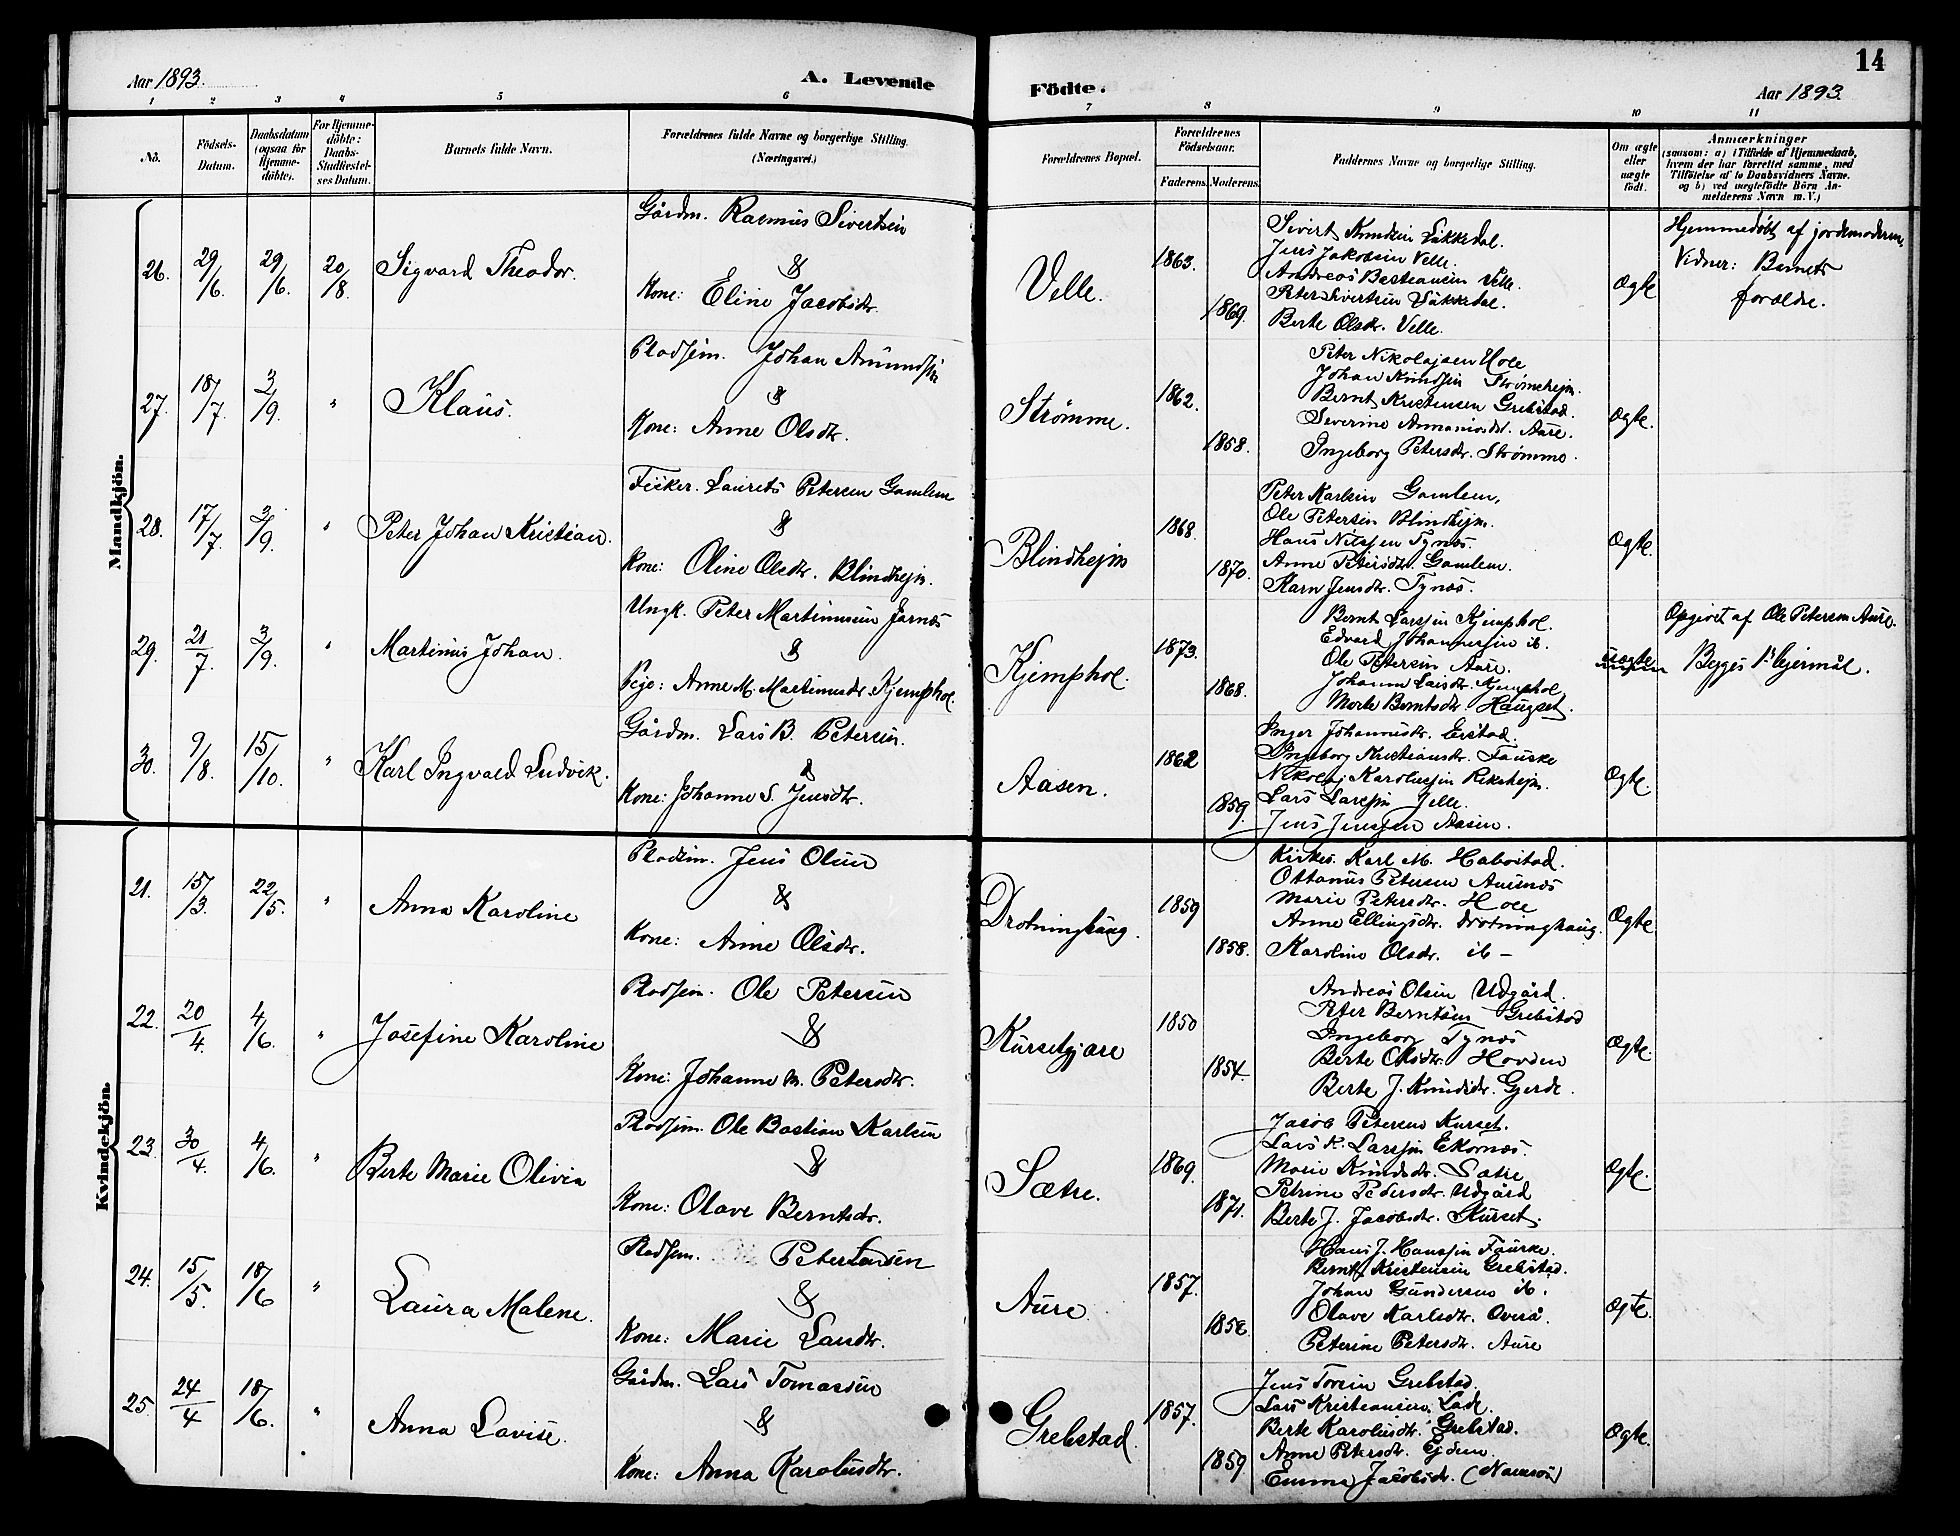 Aar 1893.
A. Levende
Födte.
14
Aar 1893.
1 2 3 4 5 6 7 8 9 10 11
No.
Födsels-Datum.
Daabsdatum (ogsaa for Hjemme-döbte).
For Hjemme-döbte: Daabs-Stadfæstel-ses Datum.
Barnets fulde Navn.
Forældrenes fulde Navne og borgerlige Stilling. (Næringsvei.)
Forældrenes Bopæl.
Forældrenes Födselsaar.
Faderens. Moderens.
Faddernes Navne og borgerlige Stilling.
Om ægte eller uægte födt.
Anmærkninger
(saasom: a) i Tilfælde af Hjemmedaab,
hvem der har forrettet samme, med
Tilföielse af to Daabsvidners Navne.
og b) ved uægtefödte Börn An-
melderens Navn m. V.)
Mandkjön.
26. 29/6. 29/6. 20/8. Sigvard Theodor.
Gårdm. Rasmus Sivertsen
&
Kone: Eline Jacobsdr.
Velle. 1863. 1869.
Sivert Knudsen Løkkedal.
Jens Jakobsen Velle.
Andreas Bastiansen Velle.
Peter Sivertsen Løkkedal.
Berte Olsdr. Velle.
Ægte
Hjemmedøbt af jordemoderen
Vidner: Barnets
forældre.
27. 18/7. 3/9. " Klaus.
Pladsem. Johan Amundsen
&
Kone: Anne Olsdtr.
Strømme. 1862. 1858.
Peter Nikolajsen Hole
Johan Knudsen Strømshejm.
Bernt Kristensen Grebstad.
Severine Ananiasdt. Aure.
Ingeborg Petersdr. Strømme.
Ægte.
28. 17/7. 3/9. " Peter Johan Kristian.
Fisker. Laurits Petersen Gamlem
&
Kone: Oline Olsdtr. Blindhejm.
Blindhejm 1868. 1870.
Peter Karlsen Gamlem,
Ole Petersen Blindhejm.
Hans Nilssen Tynæs.
Anne Petersdtr. Gamlem.
Karn Jensdr. Tynæs.
Ægte.
29. 21/7. 3/9. " Martinus Johan.
Ungk. Peter Martinusen Jarnæs
&
Pige: Anne M. Martinusdr Kjemphol.
Kjemphol. 1873. 1868.
Bernt Larssen Kjemphol.
Edvard Johannessen ib.
Ole Petersen Aure.
Johanne Larsdr. Kjemphol
Merle Berntsdr. Haugset.
uægte
Opgivet af Ole Petersen Aure.
Begges 1ste lejermål.
30. 9/8. 15/10. " Karl Ingvald Ludvik.
Gårdm. Lars B. Petersen.
&
Kone: Johanne S. Jensdtr.
Aasen. 1862 1859.
Inger Johannesdr. Erstad.
Ingeborg Kristiansdr. Fauske
Nikolaj Karolussen Rekshejm.
Lars Larssen Jelle.
Jens Jenssen Aasen.
Ægte.
Kvindekjön.
21. 15/3. 22/5. " Anna Karoline
Pladsem. Jens Olsen
&
Kone: Anne Olsdtr.
Drotninghaug. 1859 1858.
Kirkes. Karl M. Habostad.
Ottanus Petersen Aursnæs
Marie Petersdtr. Hole
Anne Ellingsdtr. Drotninghaug.
Karoline Olsdr. ib –
Ægte.
22. 20/4. 4/6. " Josefine Karoline
Pladsem. Ole Petersen
&
Kone: Johanne M. Petersdtr.
Kursetgjære 1850 1854.
Andreas Olsen Udgård.
Peter Berntsen Grebstad
Ingeborg Tynæs
Berte Olsdtr. Hovden
Berte J. Knudsdr. Gjerde.
Ægte.
23. 30/4. 4/6. " Berte Marie Olivia
Pladsem. Ole Bastian Karlsen
&
Kone: Olave Berntsdr.
Sætre. 1869. 1871.
Jacob Petersen Kurset.
Lars K. Larssen Ekornæs.
Marie Knudsdr. Sætre
Petrine Pedersdr. Udgård
Berte J. Jacobsdr. Kurset.
Ægte.
24. 15/5. 18/6 " Laura Malene.
Pladsem. Peter Larssen
&
Kone: Marie Larsdtr.
Aure. 1857. 1858.
Hans J. Hanssen Fauske.
Bernt Kristensen Grebstad.
Johan Gundersen ib.
Olave Karlsdtr. Overå.
Peterine Petersdtr. Aure
Ægte.
25. 24/4 18/6. " Anna Lovise.
Gårdm. Lars Tomassen
&
Kone: Anna Karolusdtr.
Grebstad. 1857. 1859
Jens Torsen Grebstad.
Lars Kristiansen Lade.
Berte Karolusdtr. Grebstad.
Anne Petersdtr. Ejdem.
Emma Jacobsdr. (Namsos)
Ægte.